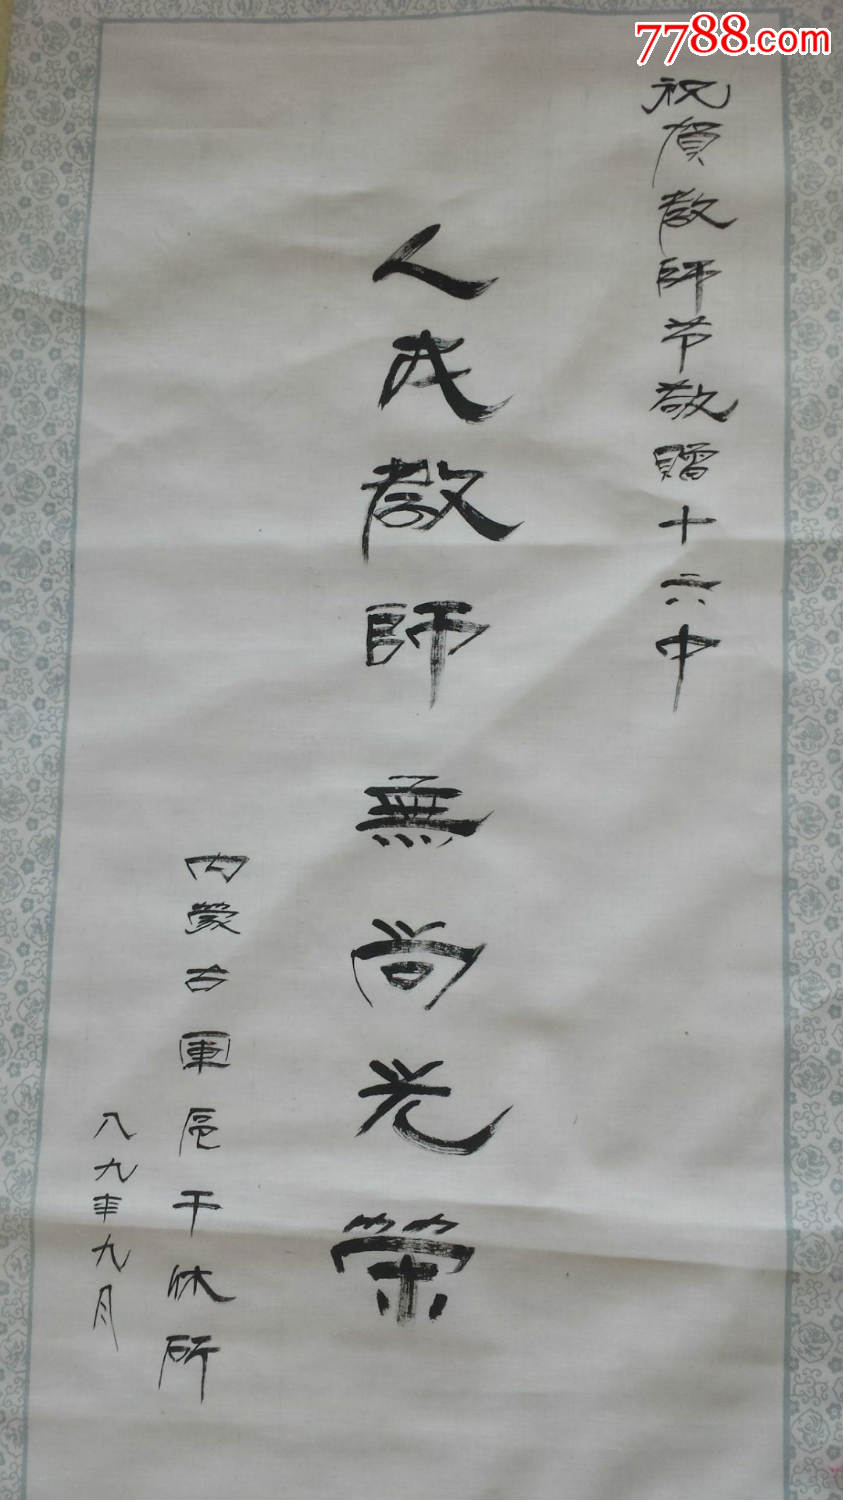 7788.com
祝賀教師节敬贈十六中
人民教師無尚光榮
内蒙古軍區干休所
八九年九月